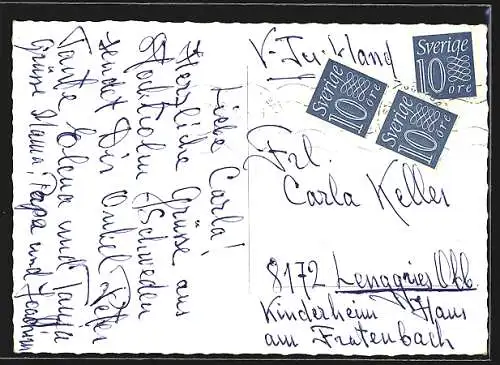 Liebe Carla!
Herzliche Grüsse aus
Stockholm /Schweden
sendet Dir Onkel Peter
Tante Elena und Tanja
Grüße Mama, Papa und
Sverige
10
öre
Sverige
10
öre
Sverige
10
öre
Frl.
Carla Keller
8172 Lenggries Obb.
Kinderheim Haus
am Fratenbach